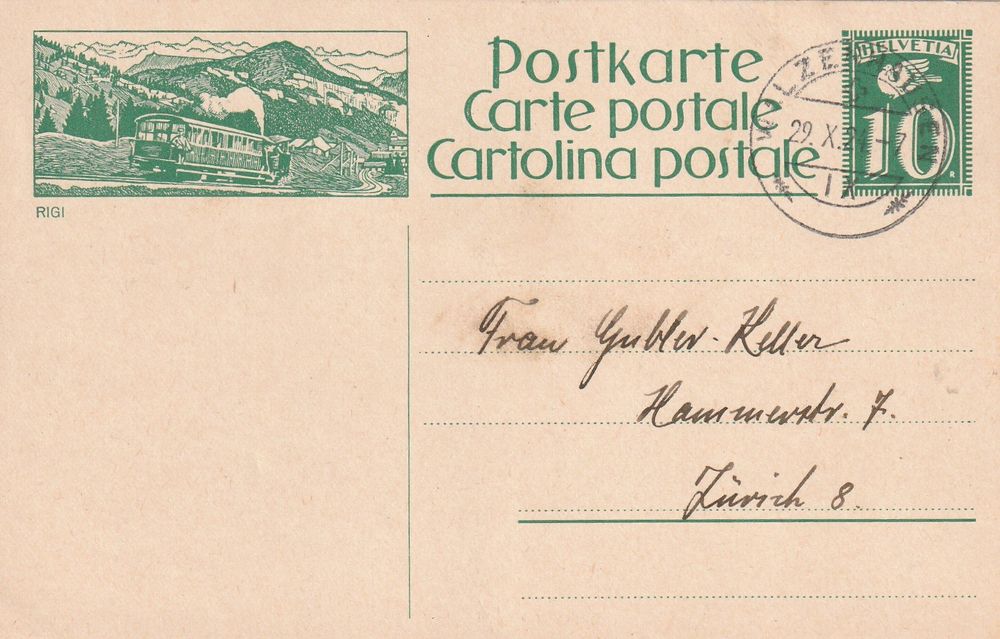 RIGI
Postkarte
Carte postale
Cartolina postale
HELVETIA
10
29. X. 24.-7
IX
Frau Gubler-Keller
Hammerstr. 7.
Zürich 8.